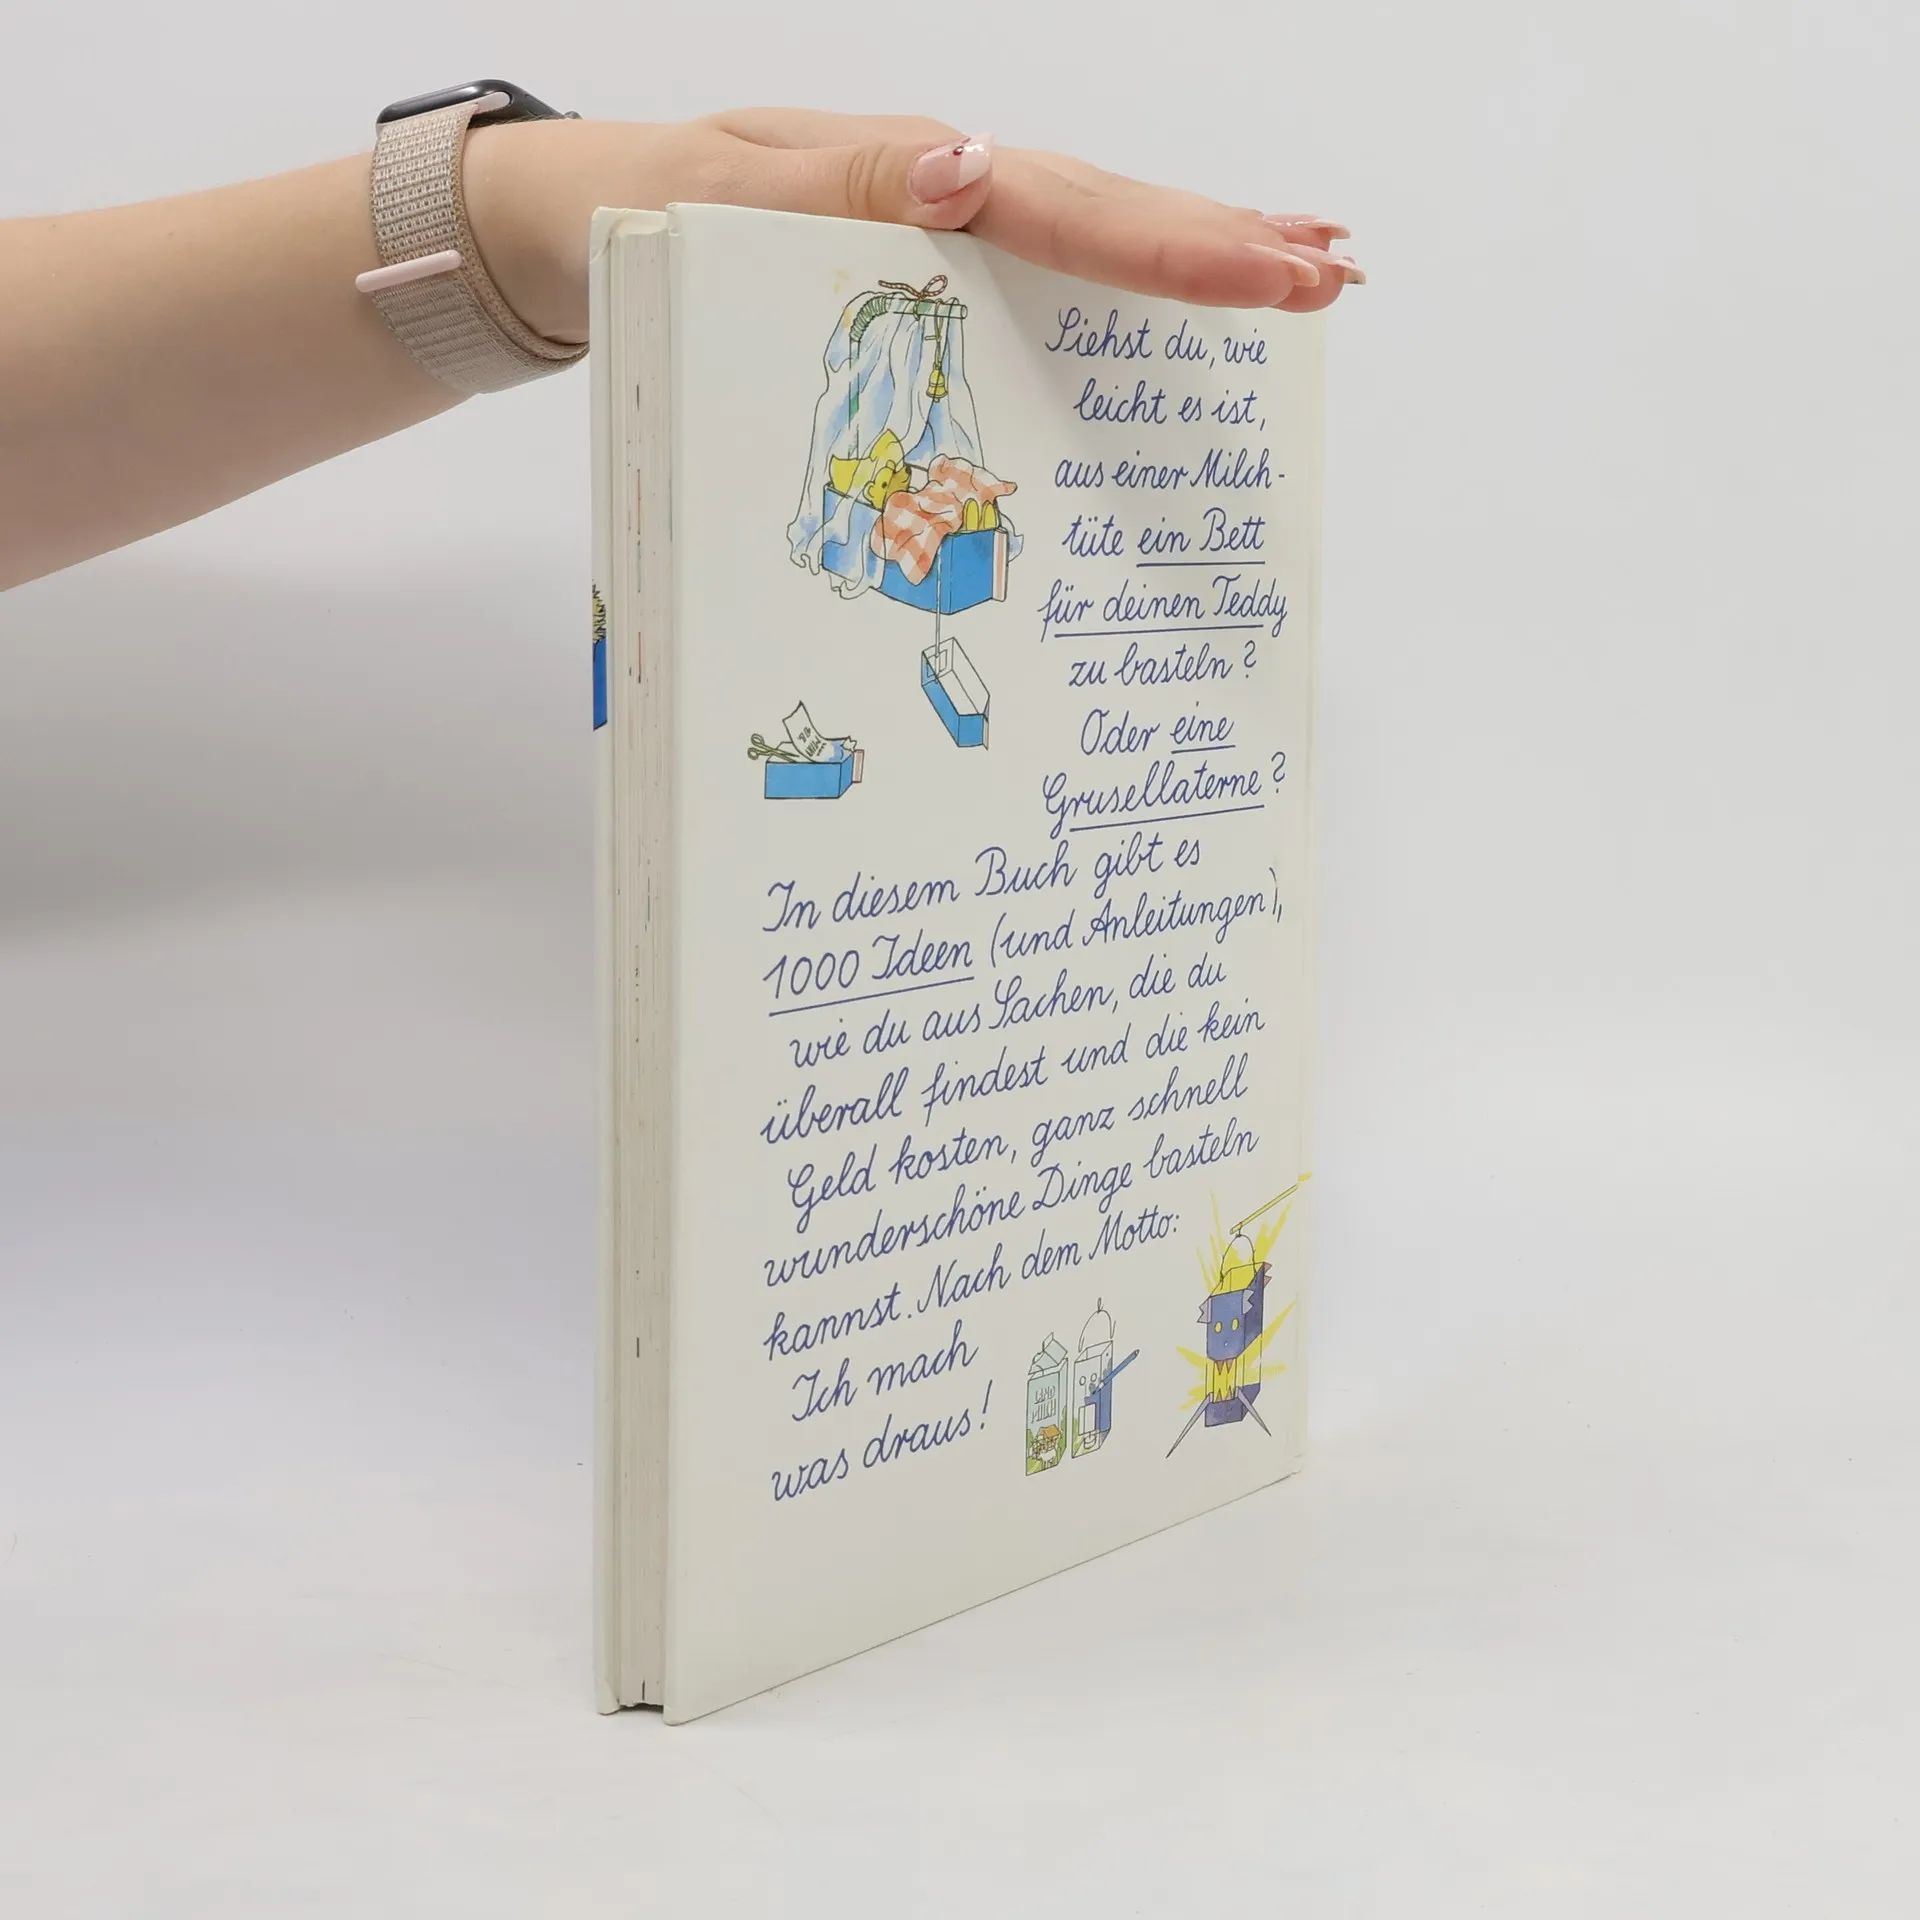 Siehst du, wie
leicht es ist,
aus einer Milch-
tüte ein Bett
für deinen Teddy
zu basteln?
Oder eine
Grusellaterne?
In diesem Buch gibt es
1000 Ideen (und Anleitungen),
wie du aus Sachen, die du
überall findest und die kein
Geld kosten, ganz schnell
wunderschöne Dinge basteln
kannst. Nach dem Motto:
Ich mach
was draus!
LAND
MILCH